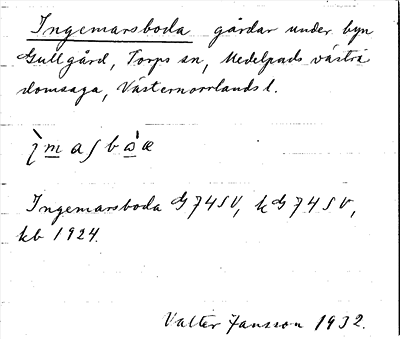 Ingemarsboda gårdar under byn
Gullgård, Torps sn, Medelpads västra
domsaga, Västernorrlands l.
Ingemarsboda G 74 SV, kG 74 SV,
kb 1924.
Valter Jansson 1932.